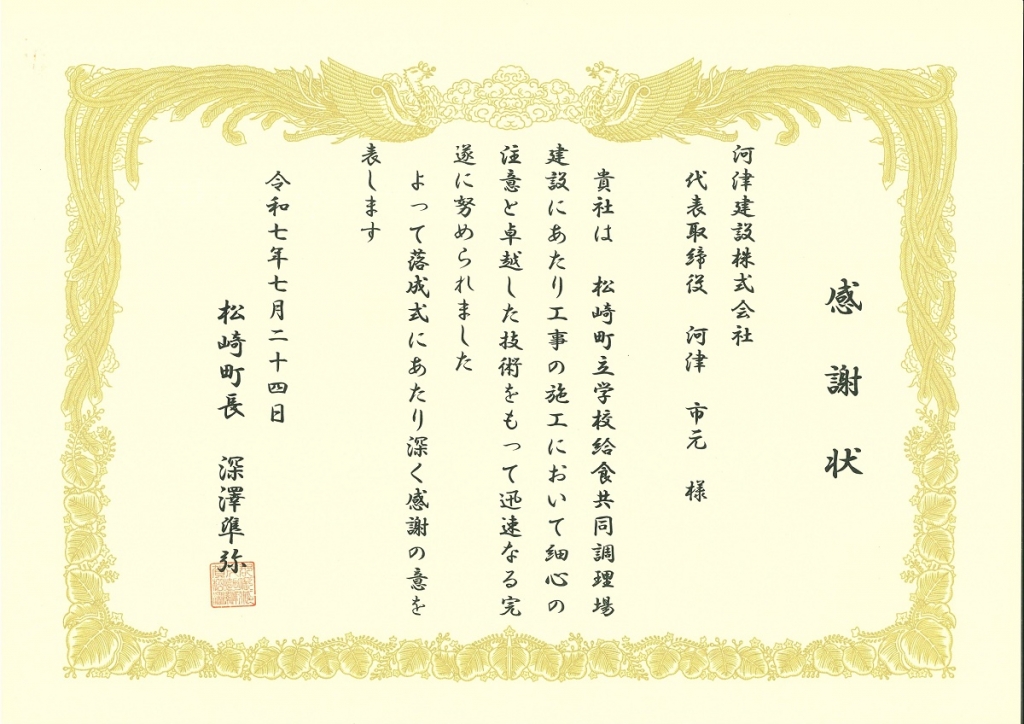 感謝状
河津建設株式会社
代表取締役 河津 市元 様
貴社は 松崎町立学校給食共同調理場
建設にあたり工事の施工において細心の
注意と卓越した技術をもって迅速なる完
遂に努められました
よって落成式にあたり深く感謝の意を
表します
令和七年七月二十四日
松崎町長 深澤準弥